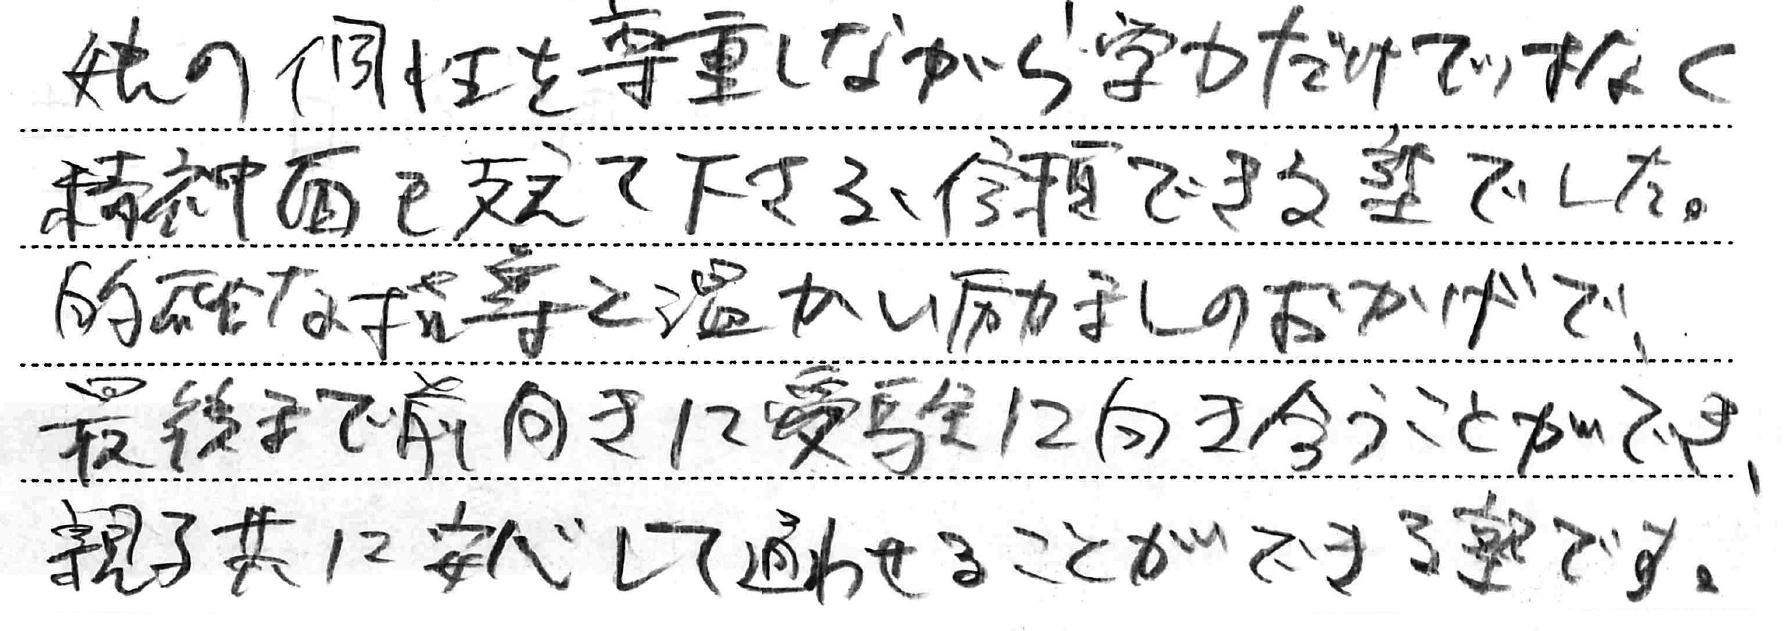 娘の個性を尊重しながら学力だけでなく
精神面も支えて下さる、信頼できる塾でした。
的確な指導と温かい励ましのおかげで、
最後まで前向きに受験に向き合うことができ、
親子共に安心して通わせることができる塾です。